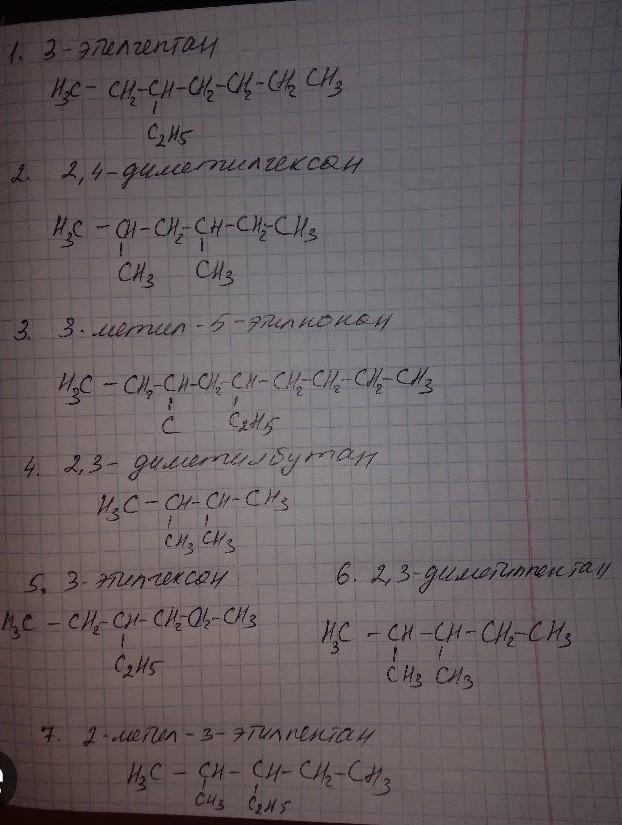 1. 3-этилгептан
H₃C - CH₂-CH-CH₂-CH₂-CH₂ CH₃
C₂H₅
2. 2,4-диметилгексан
H₃C - CH-CH₂-CH-CH₂-CH₃
CH₃ CH₃
3. 3-метил-5-этилнонан
H₃C - CH₂-CH-CH₂-CH-CH₂-CH₂-CH₂-CH₃
C C₂H₅
4. 2,3-диметилбутан
H₃C-CH-CH-CH₃
CH₃ CH₃
5. 3-этилгексан
H₃C - CH₂-CH-CH₂-CH₂-CH₃
C₂H₅
6. 2,3-диметилпентан
H₃C - CH-CH-CH₂-CH₃
CH₃ CH₃
7. 2-метил-3-этилпентан
H₃C - CH-CH-CH₂-CH₃
CH₃ C₂H₅